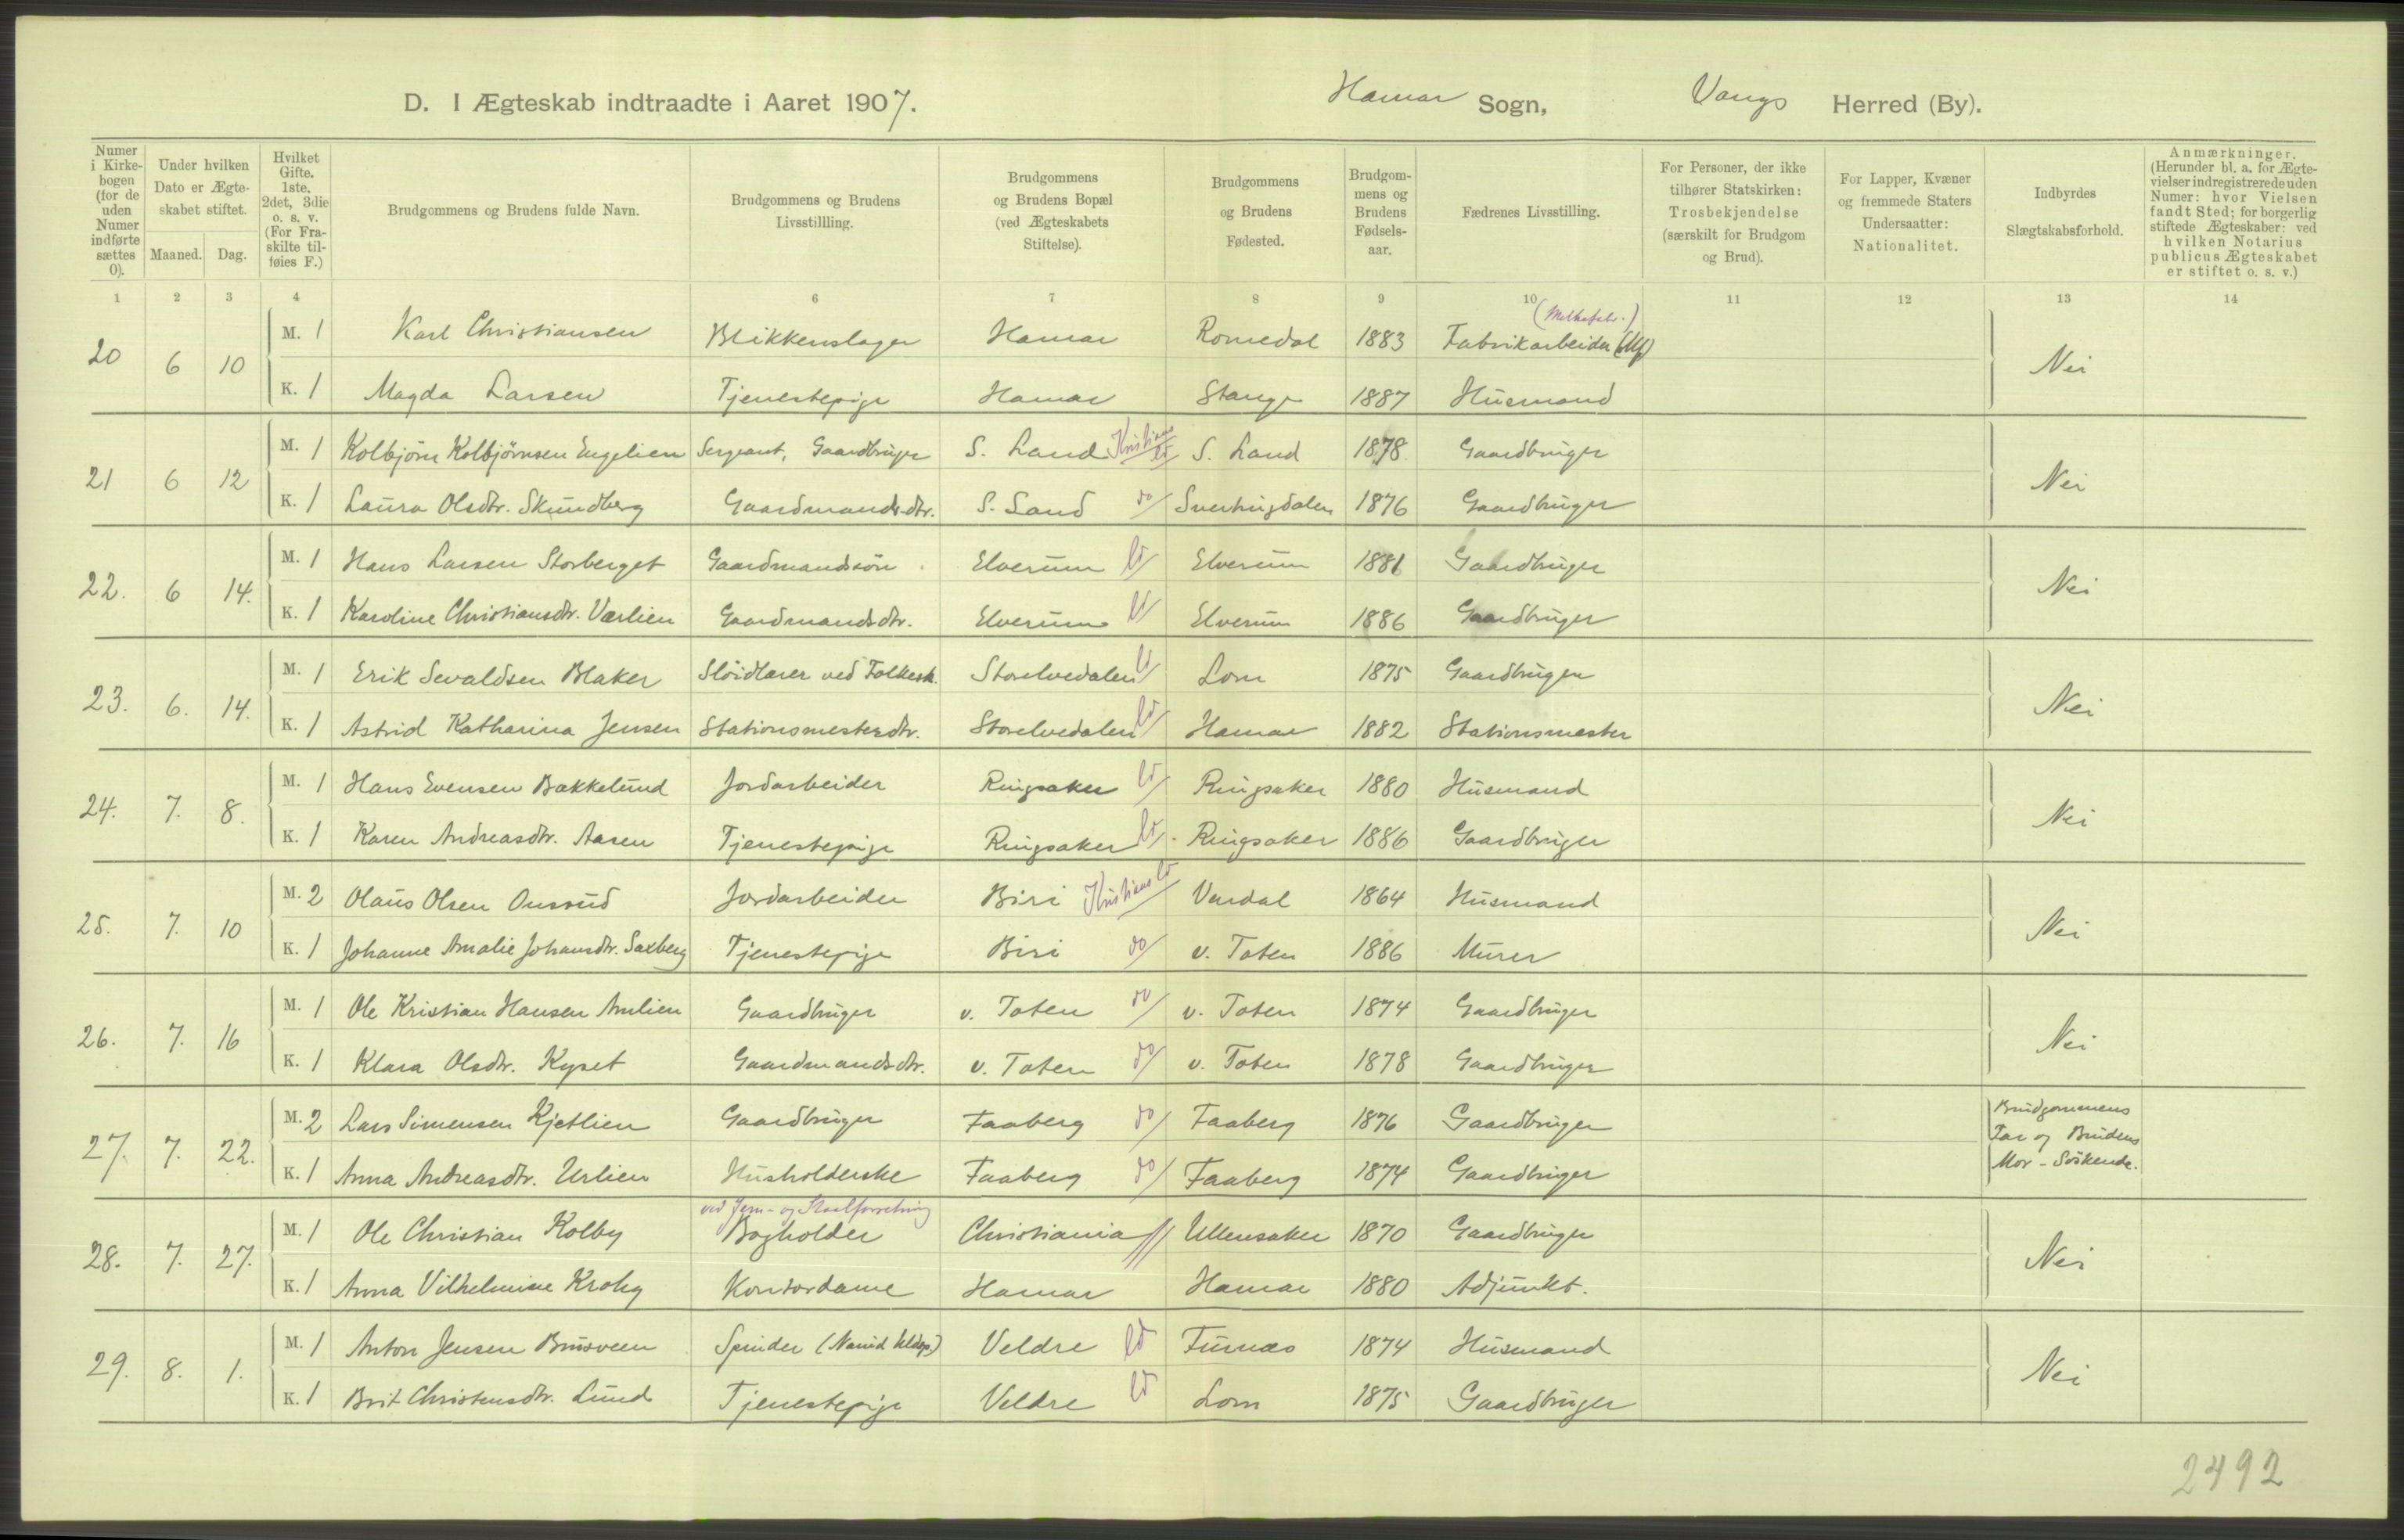 D. I Ægteskab indtraadte i Aaret 1907. Hamar Sogn, Vangs Herred (By).
Numer i Kirkebogen (for de uden Numer indførte sættes 0).
Under hvilken Dato er Ægteskabet stiftet.
Maaned. Dag.
Hvilket Gifte. 1ste, 2det, 3die o. s. v. (For Fraskilte tilføies F.)
Brudgommens og Brudens fulde Navn.
Brudgommens og Brudens Livsstillling.
Brudgommens og Brudens Bopæl (ved Ægteskabets Stiftelse).
Brudgommens og Brudens Fødested.
Brudgommens og Brudens Fødselsaar.
Fædrenes Livsstilling.
For Personer, der ikke tilhører Statskirken: Trosbekjendelse (særskilt for Brudgom og Brud).
For Lapper, Kvæner og fremmede Staters Undersaatter: Nationalitet.
Indbyrdes Slægtskabsforhold.
Anmærkninger. (Herunder bl. a. for Ægtevielser indregistrerede uden Numer: hvor Vielsen fandt Sted; for borgerlig stiftede Ægteskaber: ved hvilken Notarius publicus Ægteskabet er stiftet o. s. v.)
1 2 3 4 6 7 8 9 10 11 12 13 14
20 6 10 M. 1 Karl Christiansen Blikkenslager Hamar Romedal 1883 Fabrikarbeider Nei
K. 1 Magda Larsen Tjenestepige Hamar Stange 1887 Husmand
21 6 12 M. 1 Kolbjørn Kolbjørnsen Engelien Sergeant, Gaardbruger S. Land Kristians S. Land 1878 Gaardbruger Nei
K. 1 Laura Olsdtr. Skundberg Gaardmandsdtr. S. Land do 1876 Gaardbruger
22. 6 14. M. 1 Hans Larsen Storberget Gaardmandssön Elverum Elverum 1881 Gaardbruger Nei
K. 1 Karoline Christiansdtr. Værlien Gaardmandsdtr. Elverum Elverum 1886 Gaardbruger
23. 6. 14. M. 1 Erik Sevaldsen Blaker Slöidlærer ved Folkesk. Storelvedalen Lom 1875 Gaardbruger Nei
K. 1 Astrid Katharina Jensen Stationsmesterdtr. Storelvedalen Hamar 1882 Stationsmester
24. 7. 8. M. 1 Hans Evensen Bakkelund Jordarbeider Ringsaker Ringsaker 1880 Husmand Nei
K. 1 Karen Andreasdtr. Aasen Tjenestepige Ringsaker Ringsaker 1886 Gaardbruger
25. 7. 10 M. 2 Olaus Olsen Onsrud Jordarbeider Biri Kristians Vardal 1864 Husmand Nei
K. 1 Johanne Amalie Johansdtr. Saxberg Tjenestepige Biri do v. Toten 1886 Murer
26. 7. 16 M. 1 Ole Kristian Hansen Amlien Gaardbruger v. Toten do v. Toten 1874 Gaardbruger Nei
K. 1 Klara Olsdtr. Kyset Gaardmandsdtr. v. Toten do v. Toten 1878 Gaardbruger
27. 7. 22. M. 2 Lars Simensen Kjetlien Gaardbruger Faaberg do Faaberg 1876 Gaardbruger Brudgommens
Far og Brudens
K. 1 Anna Andreasdtr. Urlien Husholderske Faaberg do Faaberg 1874 Gaardbruger Mor - Söskende.
ved Jern- og Staalforretning
28. 7. 27. M. 1 Ole Christian Kolby Bogholder Christiania Ullensaker 1870 Gaardbruger Nei
K. 1 Anna Vilhelmine Krohg Kontordame Hamar Hamar 1880 Adjunkt.
29. 8. 1. M. 1 Anton Jensen Brusveen Spinder Veldre Furnæs 1874 Husmand Nei
K. 1 Brit Christensdtr. Lund Tjenestepige Veldre Lom 1875 Gaardbruger
2492